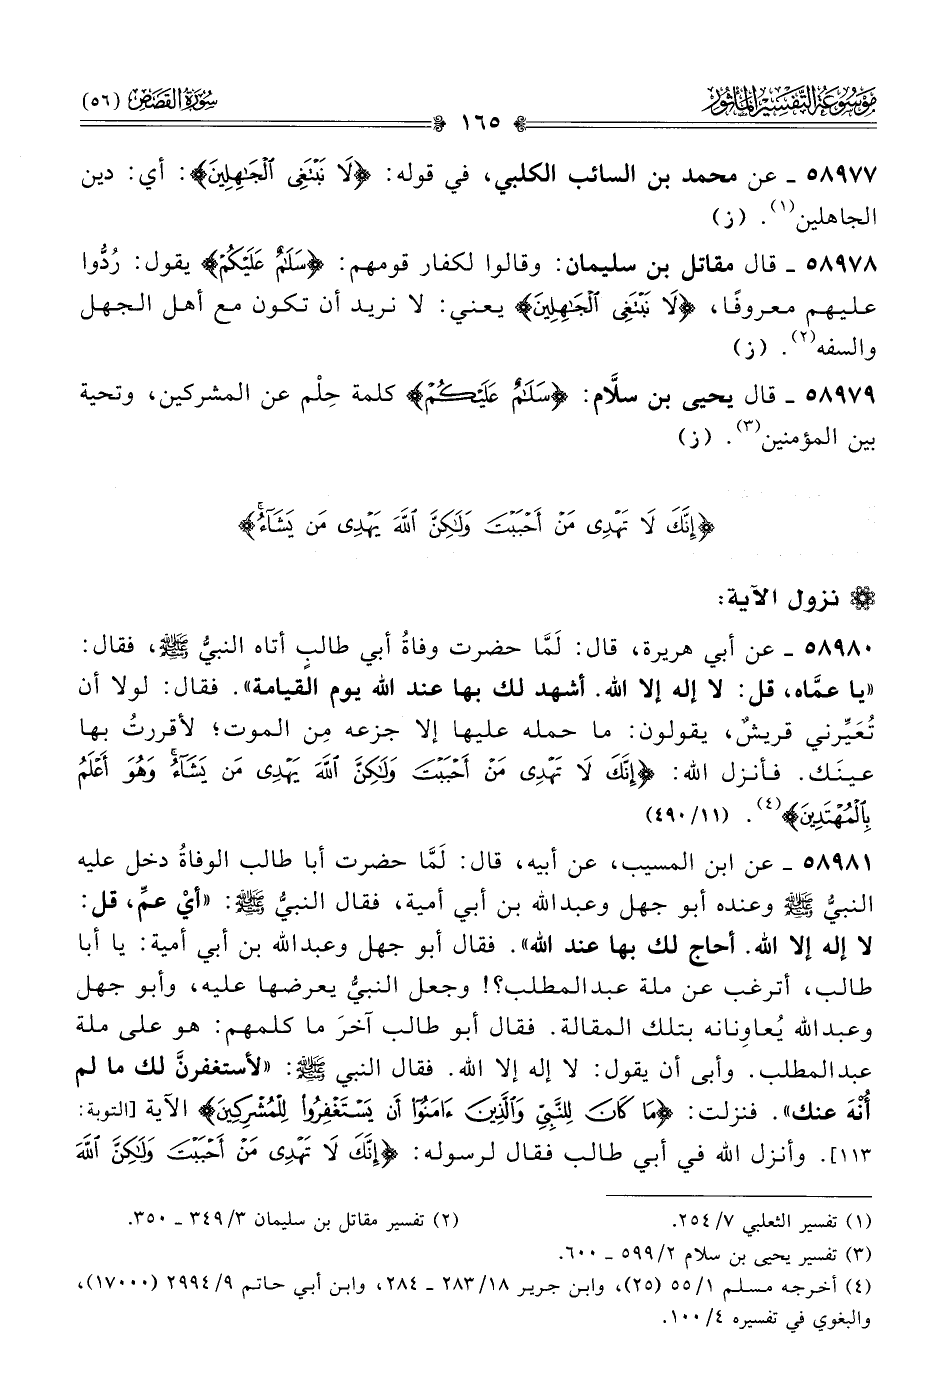 موسوعة التفسير المأثور
سورة القصص (٥٦)
١٦٥
٥٨٩٧٧ ـ عن محمد بن السائب الكلبي، في قوله: ﴿لَا نَبْتَغِى ٱلْجَٰهِلِينَ﴾: أي: دين
الجاهلين(١). (ز)
٥٨٩٧٨ ـ قال مقاتل بن سليمان: وقالوا لكفار قومهم: ﴿سَلَٰمٌ عَلَيْكُمْ﴾ يقول: رُدُّوا
عليهم معروفًا، ﴿لَا نَبْتَغِى ٱلْجَٰهِلِينَ﴾ يعني: لا نريد أن تكون مع أهل الجهل
والسفه(٢). (ز)
٥٨٩٧٩ ـ قال يحيى بن سلَّام: ﴿سَلَٰمٌ عَلَيْكُمْ﴾ كلمة حِلْم عن المشركين، وتحية
بين المؤمنين(٣). (ز)
﴿إِنَّكَ لَا تَهْدِى مَنْ أَحْبَبْتَ وَلَٰكِنَّ ٱللَّهَ يَهْدِى مَن يَشَآءُۚ﴾
نزول الآية:
٥٨٩٨٠ ـ عن أبي هريرة، قال: لَمَّا حضرت وفاةُ أبي طالبٍ أتاه النبيُّ ﷺ، فقال:
«يا عمَّاه، قل: لا إله إلا الله. أشهد لك بها عند الله يوم القيامة». فقال: لولا أن
تُعَيِّرني قريشٌ، يقولون: ما حمله عليها إلا جزعه مِن الموت؛ لأقررتُ بها
عينَك. فأنزل الله: ﴿إِنَّكَ لَا تَهْدِى مَنْ أَحْبَبْتَ وَلَٰكِنَّ ٱللَّهَ يَهْدِى مَن يَشَآءُۚ وَهُوَ أَعْلَمُ
بِٱلْمُهْتَدِينَ﴾(٤). (١١/٤٩٠)
٥٨٩٨١ ـ عن ابن المسيب، عن أبيه، قال: لَمَّا حضرت أبا طالب الوفاةُ دخل عليه
النبيُّ ﷺ وعنده أبو جهل وعبدالله بن أبي أمية، فقال النبيُّ ﷺ: «أيْ عمِّ، قل:
لا إله إلا الله. أحاج لك بها عند الله». فقال أبو جهل وعبدالله بن أبي أمية: يا أبا
طالب، أترغب عن ملة عبدالمطلب؟! وجعل النبيُّ يعرضها عليه، وأبو جهل
وعبدالله يُعاونانه بتلك المقالة. فقال أبو طالب آخرَ ما كلمهم: هو على ملة
عبدالمطلب. وأبى أن يقول: لا إله إلا الله. فقال النبي ﷺ: «لأستغفرنَّ لك ما لم
أُنْهَ عنك». فنزلت: ﴿مَا كَانَ لِلنَّبِىِّ وَٱلَّذِينَ ءَامَنُوٓا۟ أَن يَسْتَغْفِرُوا۟ لِلْمُشْرِكِينَ﴾ الآية [التوبة:
١١٣]. وأنزل الله في أبي طالب فقال لرسوله: ﴿إِنَّكَ لَا تَهْدِى مَنْ أَحْبَبْتَ وَلَٰكِنَّ ٱللَّهَ
(١) تفسير الثعلبي ٧/ ٢٥٤.
(٢) تفسير مقاتل بن سليمان ٣/ ٣٤٩ ـ ٣٥٠.
(٣) تفسير يحيى بن سلام ٢/ ٥٩٩ ـ ٦٠٠.
(٤) أخرجه مسلم ١/ ٥٥ (٢٥)، وابن جرير ١٨/ ٢٨٣ ـ ٢٨٤، وابن أبي حاتم ٩/ ٢٩٩٤ (١٧٠٠٠)،
والبغوي في تفسيره ٤/ ١٠٠.